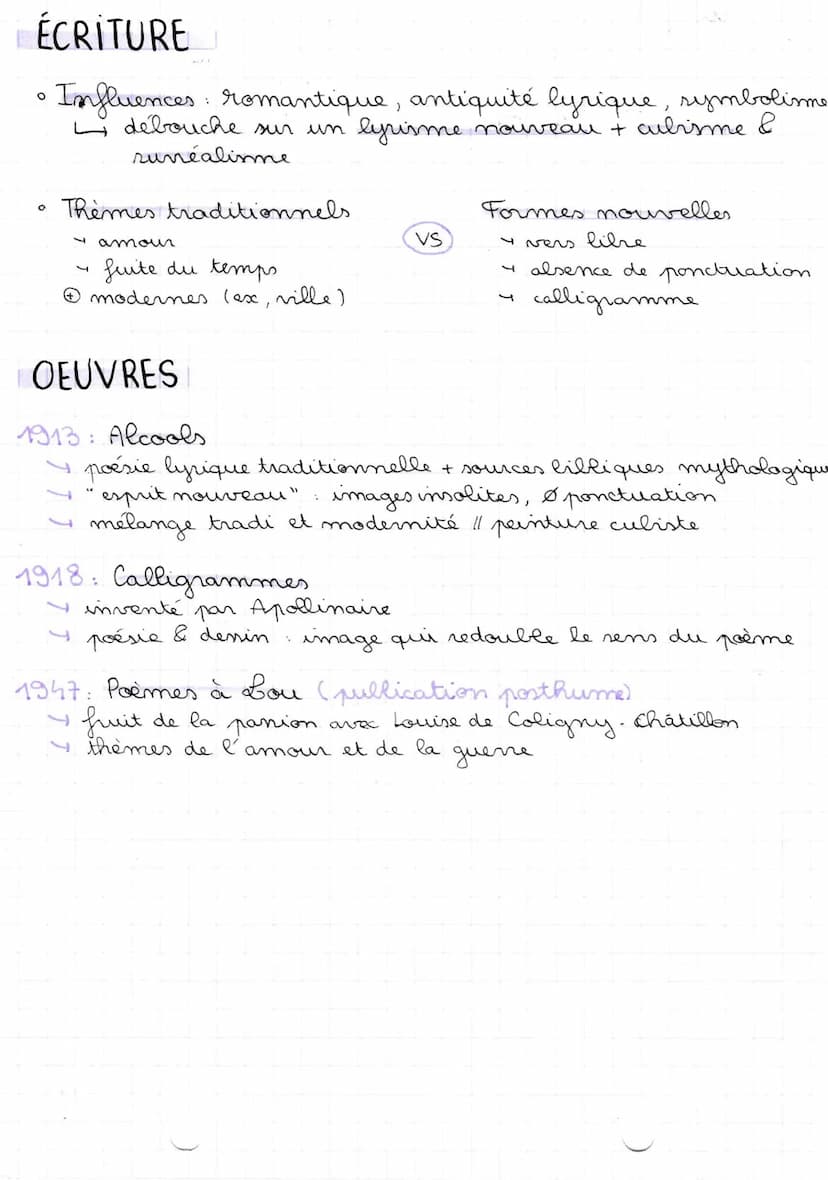 ÉCRITURE
° Influences : romantique, antiquité lyrique, symbolisme
↳ débouche sur un lyrisme nouveau + cubisme &
surréalisme
° Thèmes traditionnels
→ amour
→ fuite du temps
⊕ modernes (ex, ville)
VS
Formes nouvelles
→ vers libre
→ absence de ponctuation
→ calligramme
OEUVRES
1913 : Alcools
↳ poésie lyrique traditionnelle + sources bibliques mythologique
↳ "esprit nouveau" : images insolites, Ø ponctuation
↳ mélange tradi et modernité // peinture cubiste
1918 : Calligrammes
↳ inventé par Apollinaire
↳ poésie & dessin : image qui redouble le sens du poème
1947 : Poèmes à Lou (publication posthume)
↳ fruit de la passion avec Louise de Coligny-Châtillon
↳ thèmes de l'amour et de la guerre